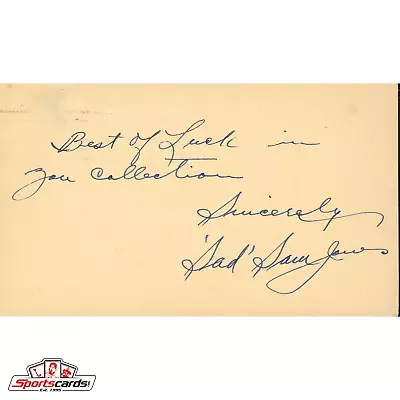 Best of Luck in
you collection
Sincerely
'Sad' Sam Jones
Sportscards!
Est. 1995